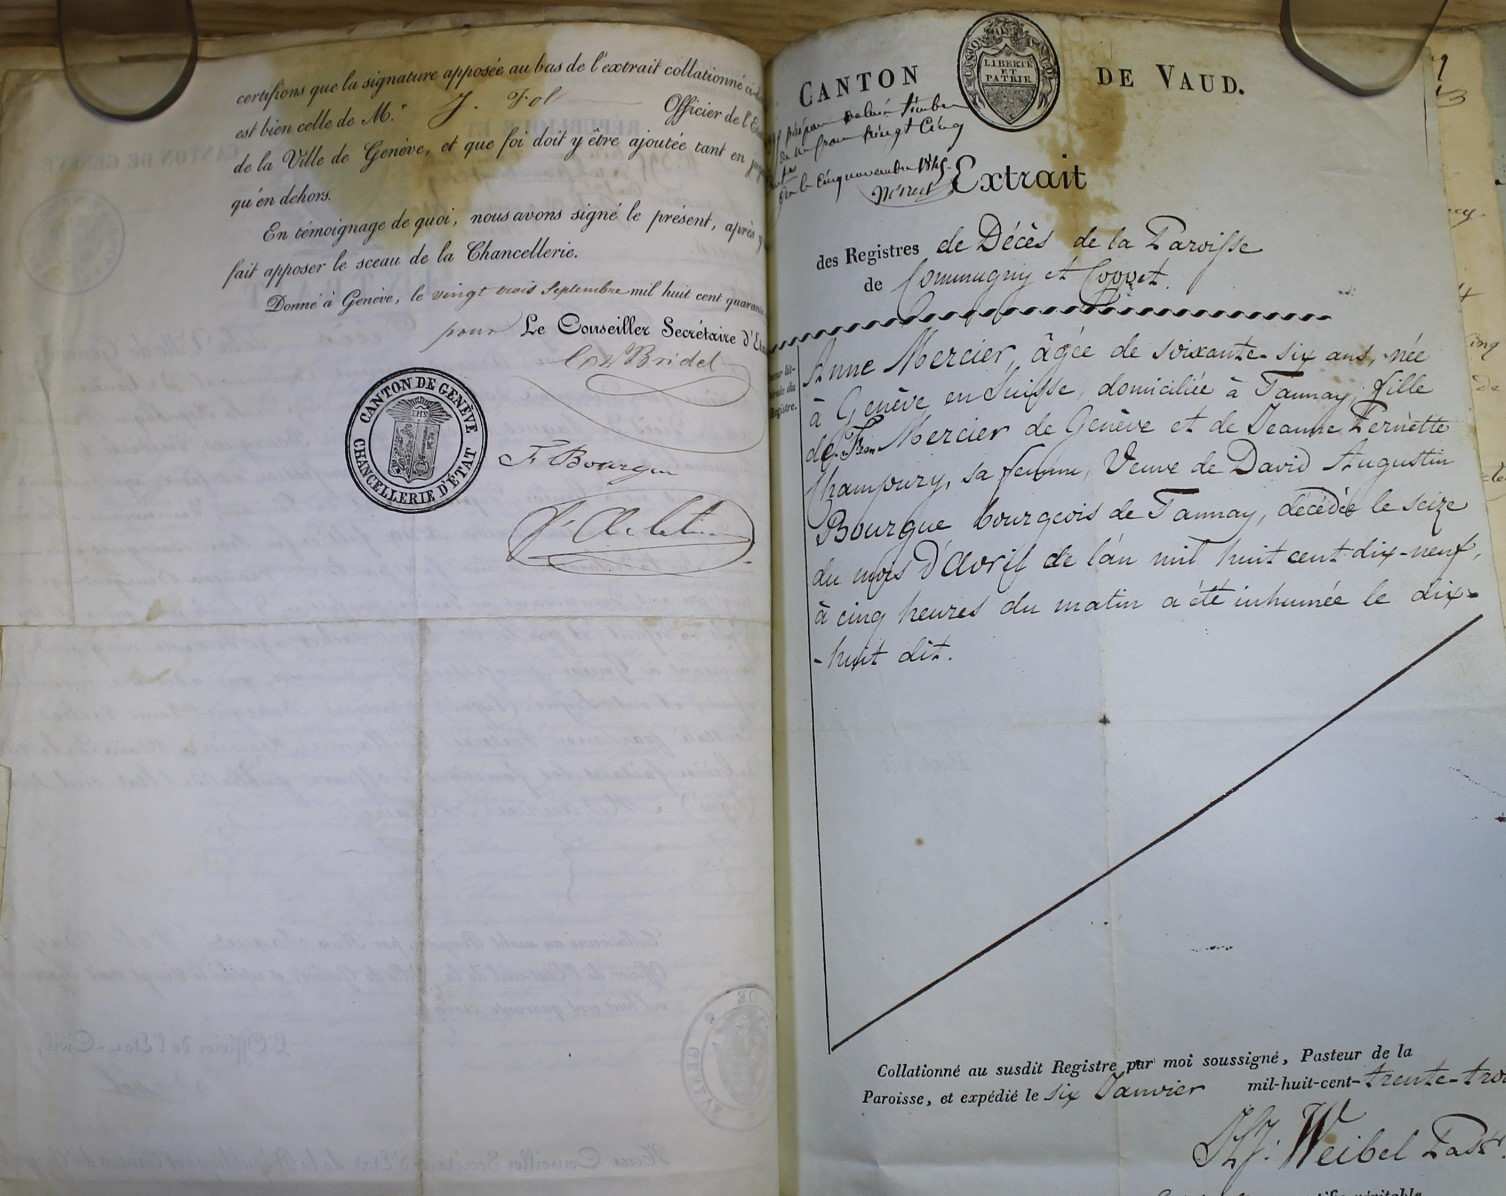 certifions que la signature apposée au bas de l'extrait collationné
est bien celle de M.r J. Fol Officier de l'E
de la Ville de Genève, et que foi doit y être ajoutée tant en
qu'en dehors.
En témoignage de quoi, nous avons signé le présent, après y
fait apposer le sceau de la Chancellerie.
Donné à Genève, le vingt trois Septembre mil huit cent quarante
pour Le Conseiller Secrétaire d'E
Bridel
CANTON DE GENÈVE
CHANCELLERIE D'ÉTAT
F. Bourgue
CANTON DE VAUD.
LIBERTÉ
ET
PATRIE
timbre
un franc vingt Cinq
le Cinq novembre 1845
Extrait
des Registres de Décès de la Paroisse
de Commugny et Coppet.
Registre.
Anne Mercier, âgée de soixante-six ans, née
à Genève en Suisse, domiciliée à Tannay, fille
de Fran Mercier de Genève et de Jeanne Pernette
Champury, sa femme, Veuve de David Augustin
Bourgue bourgeois de Tannay, décédée le seize
du mois d'Avril de l'an mil huit cent dix-neuf,
à cinq heures du matin a été inhumée le dix-
-huit dit.
Collationné au susdit Registre par moi soussigné, Pasteur de la
Paroisse, et expédié le six Janvier mil-huit-cent-trente-trois
Weibel Past.r